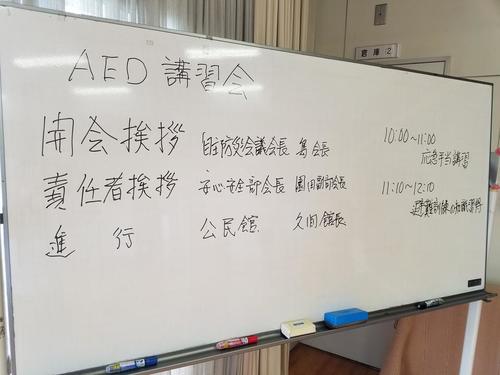 倉庫 2
AED 講習会
開会挨拶 自主防災会議会長 島 会長 10:00~11:00
応急手当講習
責任者挨拶 安心安全部会長 園田副部会長 11:10~12:10
避難訓練の
進 行 公民館 久間 館長